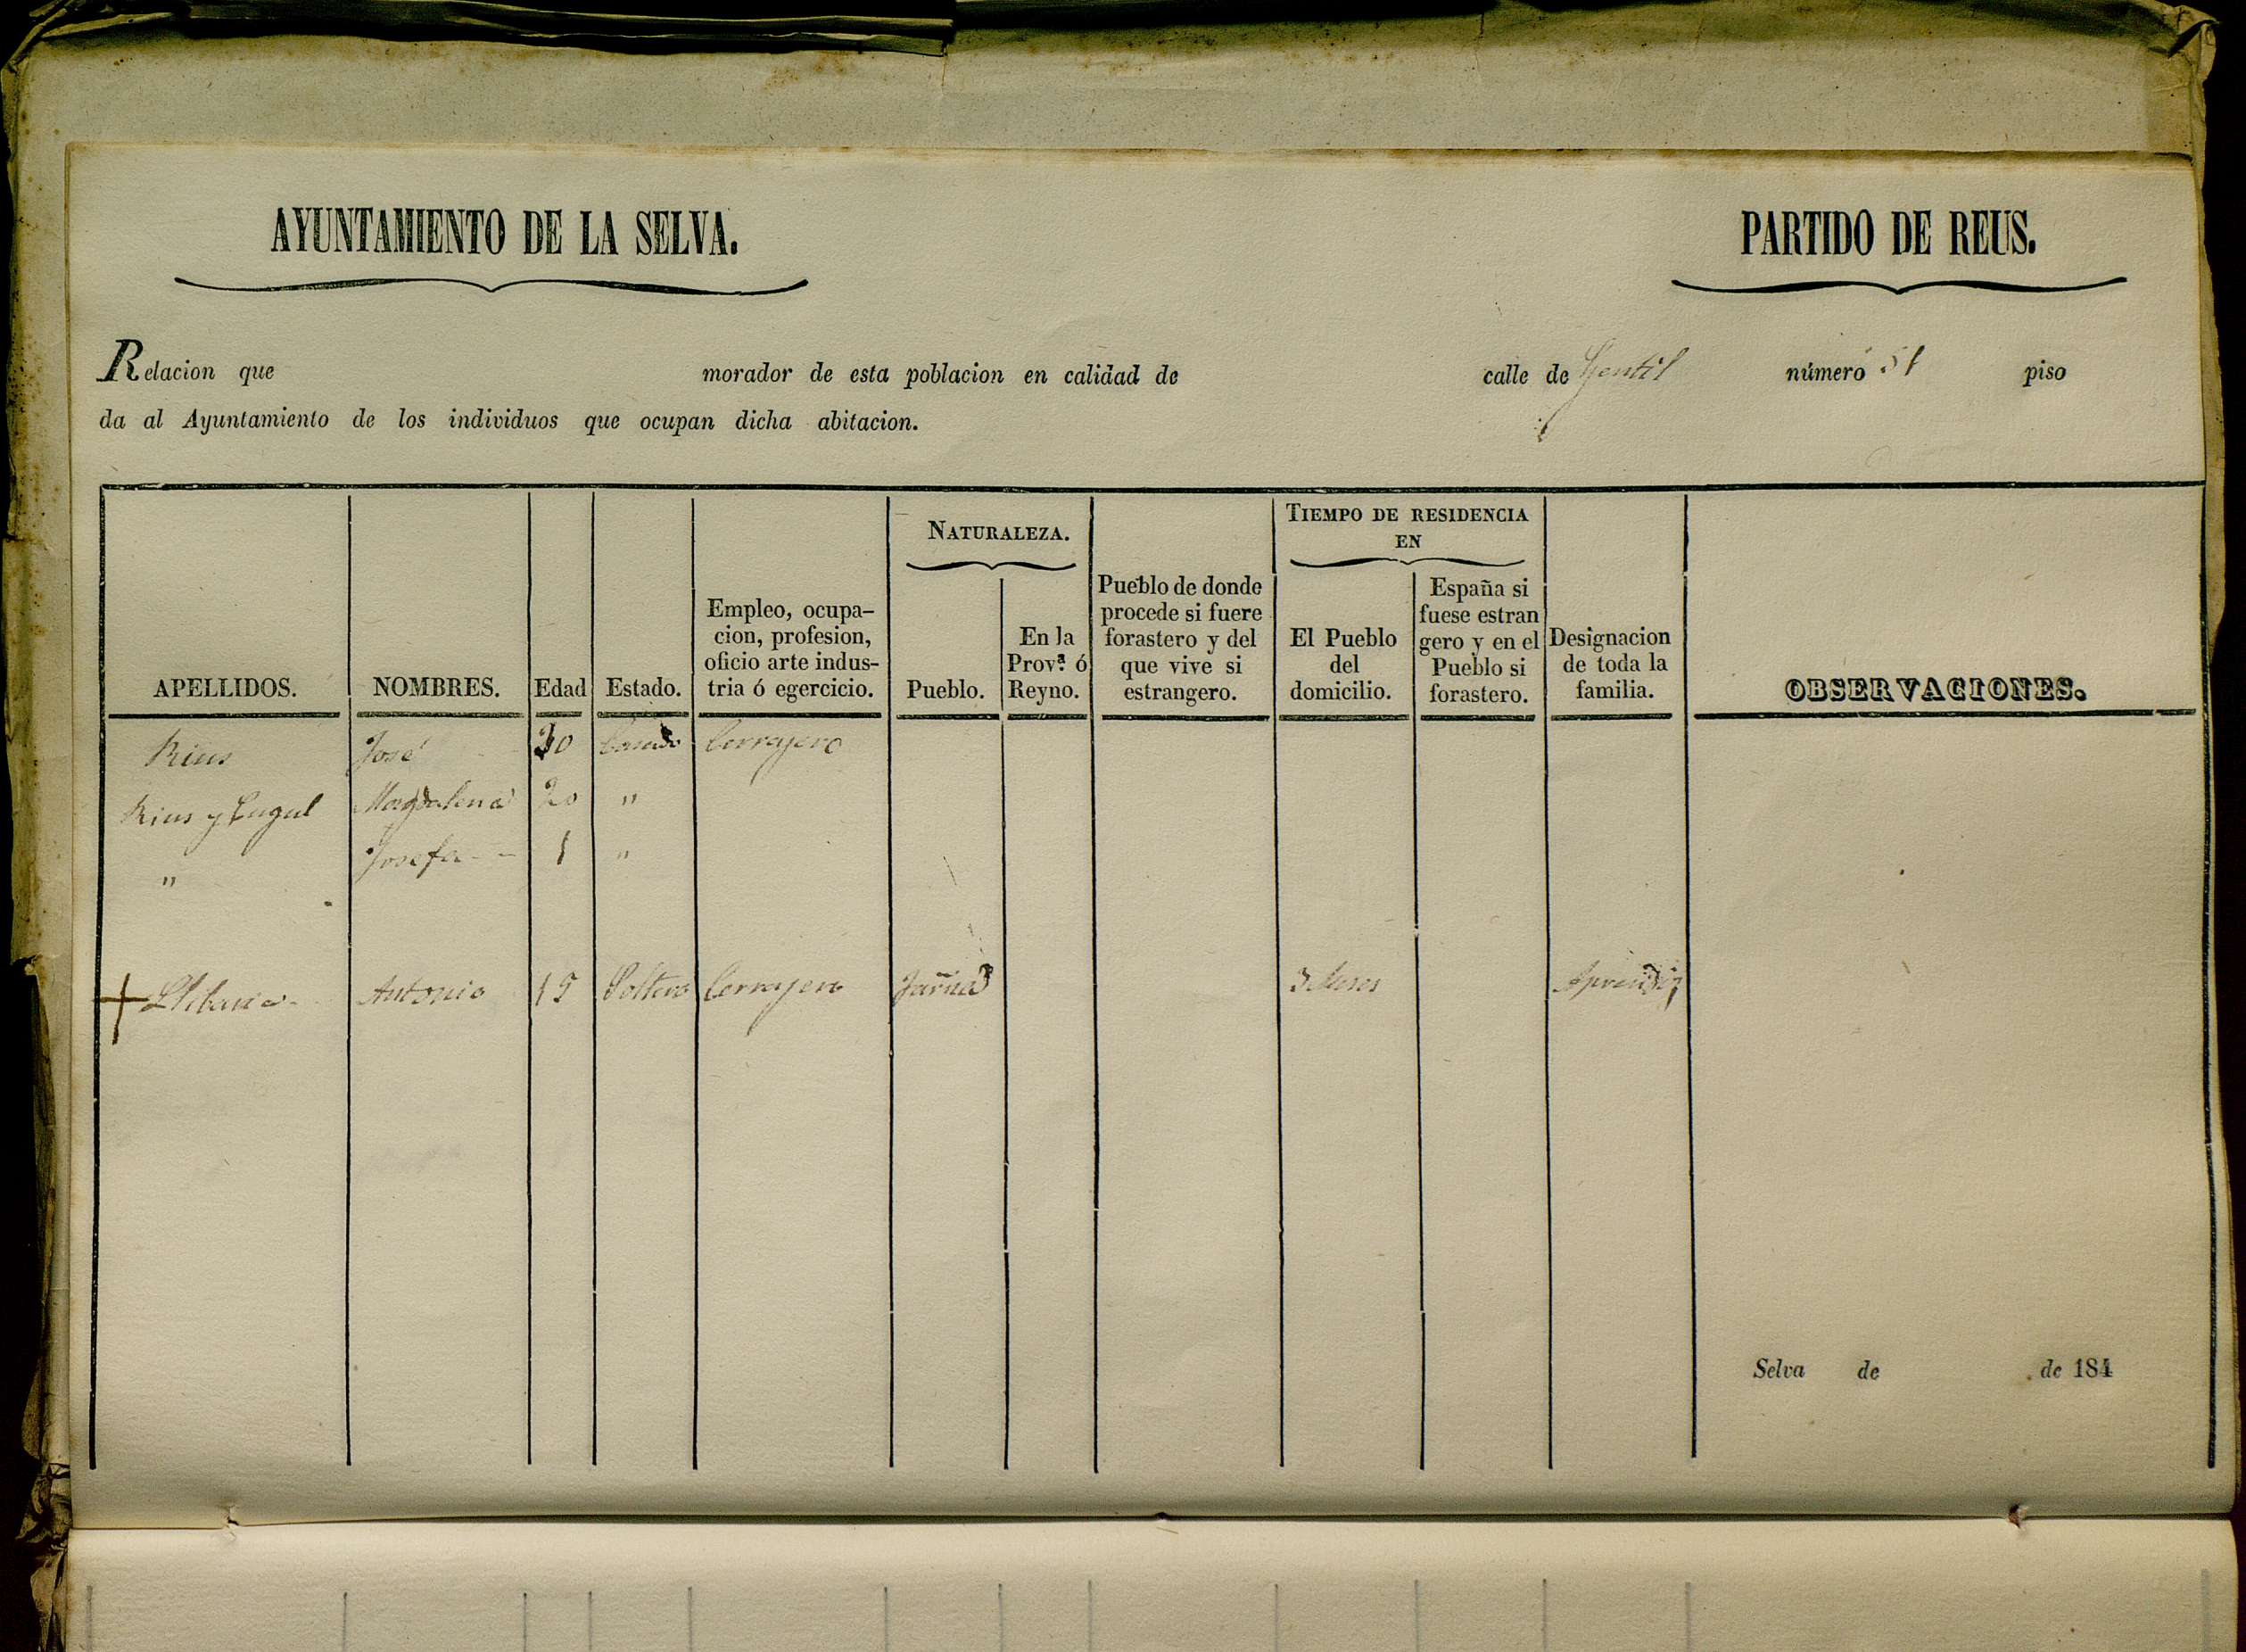 AYUNTAMIENTO DE LA SELVA.
PARTIDO DE REUS.
Relacion que morador de esta poblacion en calidad de calle de Gentil número 51 piso
da al Ayuntamiento de los individuos que ocupan dicha abitacion.
APELLIDOS.
NOMBRES.
Edad
Estado.
Empleo, ocupa-
cion, profesion,
oficio arte indus-
tria ó egercicio.
NATURALEZA.
Pueblo.
En la
Prov.ª ó
Reyno.
Pueblo de donde
procede si fuere
forastero y del
que vive si
estrangero.
TIEMPO DE RESIDENCIA
EN
El Pueblo
del
domicilio.
España si
fuese estran
gero y en el
Pueblo si
forastero.
Designacion
de toda la
familia.
OBSERVACIONES.
Rius José 30 Casado Cerrajero
Rius y Magdalena 20 "
" Josefa 1 "
Antonio 15 Soltero Cerrajero 3 Meses Aprendiz
Selva de de 184